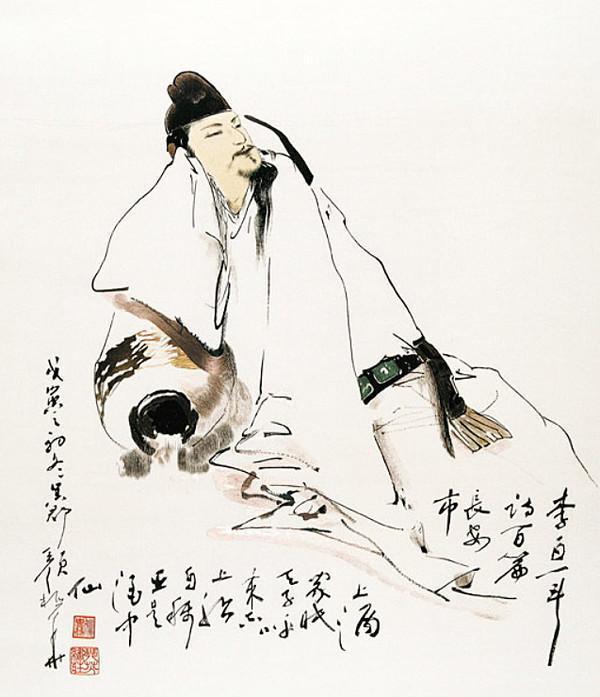 李白一斗
诗百篇
長安
市
上酒
家眠
天子呼
来不
上船
自稱
臣是
酒中
仙
戊寅之初冬吴郡顏梅華